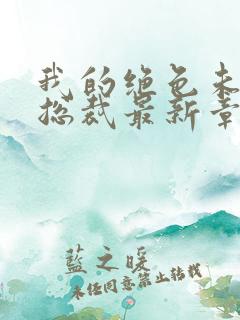 我的绝色未
总裁最新章
蓝之暖
未经同意禁止转载